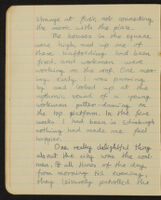 strange at first, not connecting
the room with the place.
The houses in the square
were high, and up one of
these scaffoldings had been
fixed, and workmen were
working on the roof. One mor-
ning early, I was passing
by and looked up at the
upturned round of a young
workman pitter-drawing on
the top platform. In the few
weeks I had been in Edinburgh
nothing had made me feel
happier.
One really delightful thing
about the city was the coal-
men. At all times of the day
from morning till evening,
they leisurely patrolled the